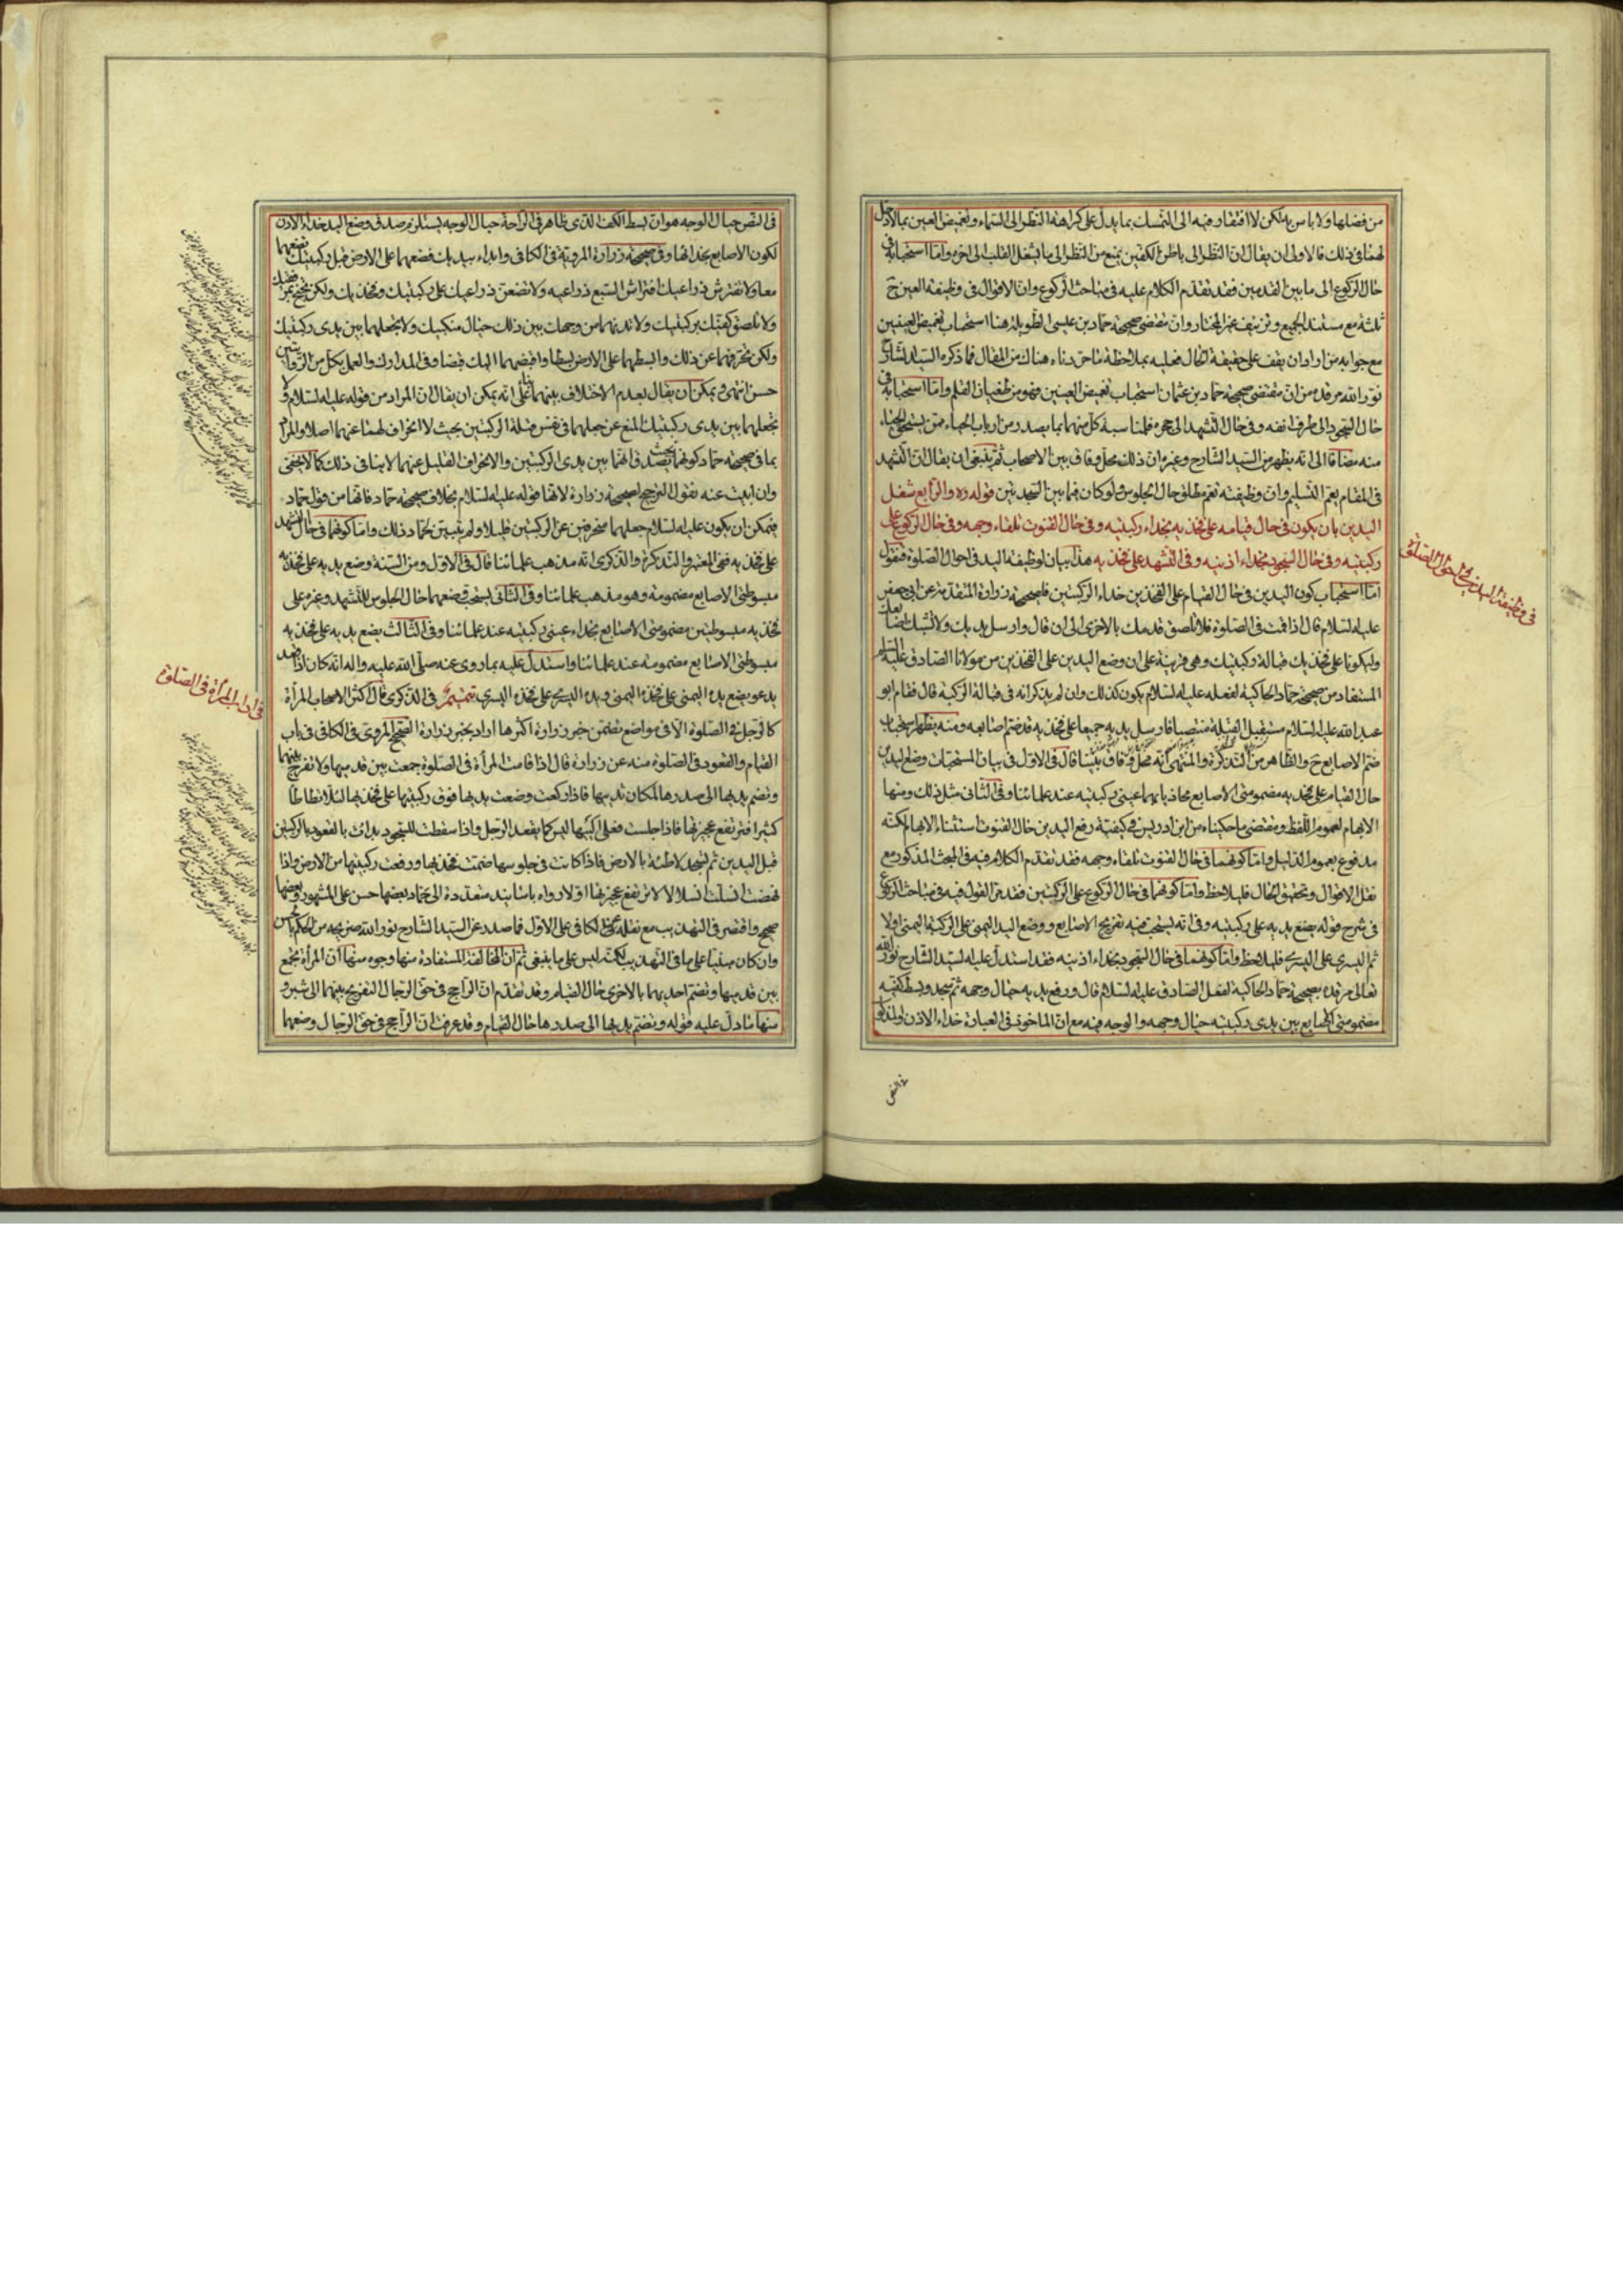 من فضلها ولا باس به لكن لا افتقار فيه الى التمسك بما يدل على كراهة النظر الى السماء وتغميض العين بما لا دخل
لهما في ذلك فالاولى ان يقال ان النظر الى باطن الكفين يمنع من النظر الى ما يشغل القلب الى اخره واما استحبابه في
حال الركوع الى ما بين القدمين فقد تقدم الكلام عليه في مباحث الركوع وان الاقوال في وظيفة العين ح
ثلثة مع مستند الجميع وتزييف غير المختار وان مقتضى صحيحة حماد بن عيسى الطويلة هنا استحباب تغميض العينين
مع جوابه من اراد ان يقف على حقيقة الحال فعليه بملاحظة ما حققناه هناك من المقال فما ذكره السيد الشارح
نور الله مرقده من ان مقتضى صحيحة حماد بن عثمان استحباب تغميض العينين فهو من طغيان القلم واما استحبابه في
حال السجود الى طرف انفه وفي حال التشهد الى حجره فلمناسبة كل منهما بما يصدر من ارباب الحياء ممن يستحق الحياء
منه مضافا الى انه يظهر من السيد الشارح وغيره ان ذلك محل وفاق بين الاصحاب ثم ينبغي ان يقال ان التشهد
في المقام يعم التسليم وان وظيفته تعم مطلق حال الجلوس ولو كان فيما بين السجدتين قوله ره والرابع شغل
اليدين بان يكون في حال قيامه على فخذيه بحذاء ركبتيه وفي حال القنوت تلقاء وجهه وفي حال الركوع على
ركبتيه وفي حال السجود بحذاء اذنيه وفي التشهد على فخذيه هذا بيان لوظيفة اليد في احوال الصلوة فنقول
اما استحباب كون اليدين في حال القيام على الفخذين حذاء الركبتين فلصحيحة زرارة المتقدمة عن ابي جعفر
عليه السلام قال اذا قمت في الصلوة فلا تلصق قدمك بالاخرى الى ان قال وارسل يديك ولا تشبك اصابعك
وليكونا على فخذيك قبالة ركبتيك وهي قرينة على ان وضع اليدين على الفخذين من مولانا الصادق عليه السلام
المستفاد من صحيحة حماد الحاكية لفعله عليه السلام يكون كذلك وان لم يذكر انه في قبالة الركبة قال فقام ابو
عبد الله عليه السلام مستقبل القبلة منتصبا فارسل يديه جميعا على فخذيه قد ضم اصابعه ومنه يظهر استحباب
ضم الاصابع ح والظاهر من التذكرة والمنتهى انه محل وفاق بيننا قال في الاول في بيان المستحبات وضع اليدين
حال القيام على فخذيه مضمومتي الاصابع محاذيا بهما عيني ركبتيه عند علمائنا وفي الثاني مثل ذلك ومنها
الابهام لعموم اللفظ ومقتضى ما حكيناه من ابن ادريس في كيفية رفع اليدين حال القنوت استثناء الابهام لكنه
مدفوع بعموم الدليل واما كونهما في حال القنوت تلقاء وجهه فقد تقدم الكلام فيه في المبحث المذكور مع
نقل الاقوال وتحقيق الحال فليلاحظ واما كونهما في حال الركوع على الركبتين فقد مر القول فيه في مباحث الركوع
في شرح قوله يضع يديه على ركبتيه وفي انه يستحب فيه تفريج الاصابع ووضع اليد اليمنى على الركبة اليمنى اولا
ثم اليسرى على اليسرى فليلاحظ واما كونهما في حال السجود بحذاء اذنيه فقد استدل عليه السيد الشارح نور الله
تعالى مرقده بصحيحة حماد الحاكية لفعل الصادق عليه السلام قال ورفع يديه حيال وجهه ثم سجد وبسط كفيه
مضمومتي الاصابع بين يدى ركبتيه حيال وجهه والوجه فيه مع ان الماخوذ في العبارة حذاء الاذن والمذكور
في النص
في وظيفة اليدين في احوال الصلوة
في النص حيال الوجه هو ان بسط الكف الذى ظاهر في الراحة حيال الوجه يستلزم صدق وضع اليد حذاء الاذن
لكون الاصابع بحذائها وفي صحيحة زرارة المروية في الكافي وابدا بيديك فضعهما على الارض قبل ركبتيك تضعهما
معا ولا تفترش ذراعيك افتراش السبع ذراعيه ولا تضعن ذراعيك على ركبتيك وفخذيك ولكن تجنح بمرفقيك
ولا تلصق كفيك بركبتيك ولا تدنهما من وجهك بين ذلك حيال منكبيك ولا تجعلهما بين يدى ركبتيك
ولكن تحرفهما عن ذلك وابسطهما على الارض بسطا واقبضهما اليك قبضا وفي المدارك والعمل بكل من الروايتين
حسن انتهى ويمكن ان يقال بعدم الاختلاف بينهما على انه يمكن ان يقال ان المراد من قوله عليه السلام ولا
تجعلهما بين يدى ركبتيك المنع عن جعلهما في نفس قبلة الركبتين بحيث لا انحراف لهما عنهما اصلا والمراد
بما في صحيحة حماد كونهما بحيث يصدق انهما بين يدى الركبتين والانحراف القليل عنهما لا ينافي ذلك كما لا يخفى
وان ابيت عنه نقول الترجيح لصحيحة زرارة لانها قوله عليه السلام بخلاف صحيحة حماد فانها من قول حماد
فيمكن ان يكون عليه السلام جعلهما منحرفتين عن الركبتين قليلا ولم يتبين لحماد ذلك واما كونهما في حال التشهد
على فخذيه ففي المعتبر والتذكرة والذكرى انه مذهب علمائنا قال في الاول ومن السنة وضع يديه على فخذيه
مبسوطتي الاصابع مضمومة وهو مذهب علمائنا وفي الثاني يستحب وضعهما حال الجلوس للتشهد وغيره على
فخذيه مبسوطتين مضمومتي الاصابع بحذاء عيني ركبتيه عند علمائنا وفي الثالث يضع يديه على فخذيه
مبسوطتي الاصابع مضمومة عند علمائنا واستدل عليه بما روى عنه صلى الله عليه واله انه كان اذا قعد
يدعو يضع يده اليمنى على فخذه اليمنى ويده اليسرى على فخذه اليسرى تتميم في الذكرى قال اكثر الاصحاب المرأة
كالرجل في الصلوة الا في مواضع تضمن خبر زرارة اكثرها اراد بخبر زرارة الصحيح المروي في الكافي في باب
القيام والقعود في الصلوة منه عن زرارة قال اذا قامت المرأة في الصلوة جمعت بين قدميها ولا تفرج بينهما
وتضم يديها الى صدرها لمكان ثدييها فاذا ركعت وضعت يديها فوق ركبتيها على فخذيها لئلا تطاطا
كثيرا فترتفع عجيزتها فاذا جلست فعلى اليتيها ليس كما يقعد الرجل واذا سقطت للسجود بدات بالقعود بالركبتين
قبل اليدين ثم تسجد لاطئة بالارض فاذا كانت في جلوسها ضمت فخذيها ورفعت ركبتيها من الارض واذا
نهضت انسلت انسلالا لا ترتفع عجيزتها اولا رواه باسانيد متعددة الى حماد بعضها حسن على المشهور وبعضها
صحيح واقتصر في التهذيب مع نقله عن الكافي على الاول فما صدر عن السيد الشارح نور الله ضريحه من الحكم
وان كان مبنيا على ما في التهذيب لكنه ليس على ما ينبغي ثم ان المخالفة المستفادة منها وجوه منها ان المرأة تجمع
بين قدميها وتضم احديهما بالاخرى حال القيام وقد تقدم ان الراجح في حق الرجال التفريج بينهما الى شبر و
منها ما دل عليه قوله وتضم يديها الى صدرها حال القيام وقد عرفت ان الراجح في حق الرجال وضعهما
في اداب المرأة في الصلوة